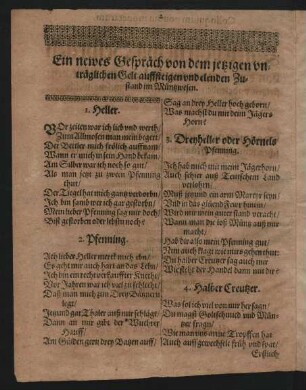 Ein newes Gespräch von dem jetzigen vn-
träglichen Gelt auffsteigen vnd elenden Zu-
stand im Müntzwesen.
1. Heller.
VOr zeiten war ich lieb vnd werth /
Zum Allmosen man mein begert /
Der Bettler mich frölich auffnam
Wann er mich in sein Hand bekam
Am Silber war ich noch so gut /
Als man jetzt zu zweyen Pfenning
thut /
Der Tigel hat mich gantz verdorbn /
Ich bin sambt wer ich gar gestorbn /
Mein lieber Pfenning sag mir doch
Bist gestorben oder lebstu noch?
2. Pfenning.
Ach lieber Heller merck mich ebn /
Es geht mir auch hart an das Lebn /
Ich bin ein recht verkauffter Knecht
Vor Jahren war ich viel zu schlecht /
Daß man mich zun
legt /
Jetzund gar Thaler auß mir schlägt /
Dann an mir gibt der Wuchrer
Hauff /
Am Gulden gern drey Batzen auff /
Sag an drey Heller hoch geborn /
Was machst du mit dem Jägers
Horn?
3. Dreyheller oder Hörnels
Pfenning.
Ich hab mich mit meim Jägerhorn /
Auch schier auß Teutschem Land
verlohrn /
Muß jetzund ein arm Martrer seyn /
Vnd in das glüend Feur hinein /
Wird mir mein guter stand veracht /
Wann man die loß Müntz auß mir
macht /
Hab du also mein Pfenning gut /
Du halber Creutzer sag auch mir
Wie steht der Handel dann mit dir?
4. Halber Creutzer.
Was sol ich viel von mir hersagn /
Du magst Goldschmid vnd Mün-
tzer fragn /
Wie man vns arme Tropffen hat
Auch auff gewechselt früh vnd spat /
Erstlich